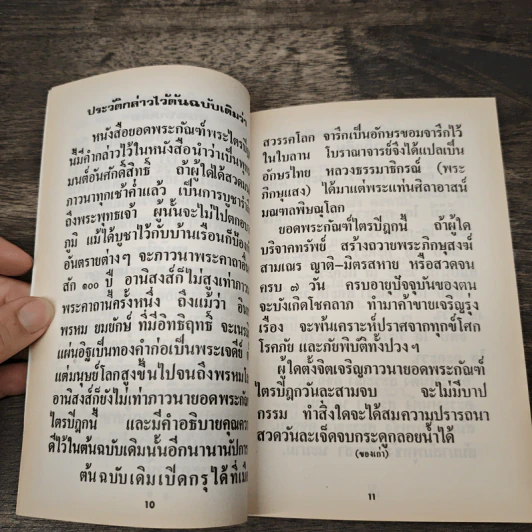 ประวัติกล่าวไว้ต้นฉบับเดิมว่า
หนังสือยอดพระกัณฑ์พระไตรปิฎก
นี้มีคำกล่าวไว้ในหนังสือนำว่าเป็นพุทธ
มนต์อันศักดิ์สิทธิ์ ถ้าผู้ใดได้สวดมนต์
ภาวนาทุกเช้าค่ำแล้ว เป็นการบูชารำลึก
ถึงพระพุทธเจ้า ผู้นั้นจะไม่ไปตกอบาย
ภูมิ แม้ได้บูชาไว้กับบ้านเรือนก็ป้องกัน
อันตรายต่างๆ จะภาวนาพระคาถาอื่น
สัก ๑๐๐ ปี อานิสงส์ก็ไม่สูงเท่าภาวนา
พระคาถานี้ครั้งหนึ่ง ถึงแม้ว่า อินทร์
พรหม ยมยักษ์ ที่มีอิทธิฤทธิ์ จะเนรมิต
แผ่นอิฐเป็นทองคำก่อเป็นพระเจดีย์
แต่มนุษย์โลกสูงขึ้นไปจนถึงพรหมโลก
อานิสงส์ก็ยังไม่เท่าภาวนายอดพระกัณฑ์
ไตรปิฎกนี้ และมีคำอธิบายคุณความ
ดีไว้ในต้นฉบับเดิมนั้นอีกนานานัปการ
ต้นฉบับเดิมเปิดกรุได้ที่เมือง
10
สวรรคโลก จารึกเป็นอักษรขอมจารึกไว้
ในใบลาน โบราณาจารย์จึงได้แปลเป็น
อักษรไทย หลวงธรรมาธิกรณ์ (พระ
ภิกษุแสง) ได้มาแต่พระแท่นศิลาอาสน์
มณฑลพิษณุโลก
ยอดพระกัณฑ์ไตรปิฎกนี้ ถ้าผู้ใด
บริจาคทรัพย์ สร้างถวายพระภิกษุสงฆ์
สามเณร ญาติ-มิตรสหาย หรือสวดจน
ครบ ๗ วัน ครบอายุปัจจุบันของตน
จะบังเกิดโชคลาภ ทำมาค้าขายเจริญรุ่ง
เรือง จะพ้นเคราะห์ปราศจากทุกข์โศก
โรคภัย และภัยพิบัติทั้งปวงฯ
ผู้ใดตั้งจิตเจริญภาวนายอดพระกัณฑ์
ไตรปิฎกวันละสามจบ จะไม่มีบาป
กรรม ทำสิ่งใดจะได้สมความปรารถนา
สวดวันละเจ็ดจบกระดูกลอยน้ำได้
(ของเก่า)
11